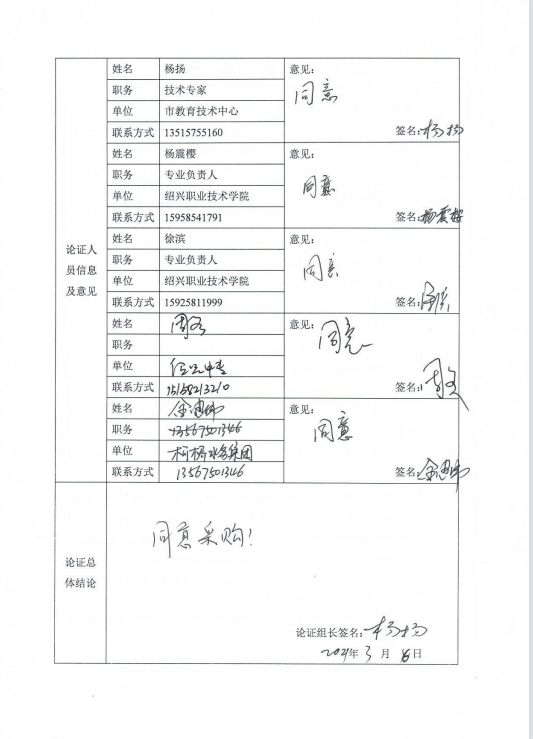 姓名 杨扬 意见：
同意
职务 技术专家
单位 市教育技术中心
联系方式 13515755160 签名：杨扬
姓名 杨震樱 意见：
职务 专业负责人
同意
单位 绍兴职业技术学院
联系方式 15958541791 签名：杨震樱
论证人
员信息
及意见
姓名 徐滨 意见：
职务 专业负责人
同意
单位 绍兴职业技术学院
联系方式 15925811999 签名：
姓名 意见：
同意
职务
单位
联系方式 15158213210 签名：
姓名 意见：
职务 13567501346
同意
单位 柯桥水务集团
联系方式 13567501346 签名：
论证总
体结论
同意采购！
论证组长签名：杨扬
2021年3月16日